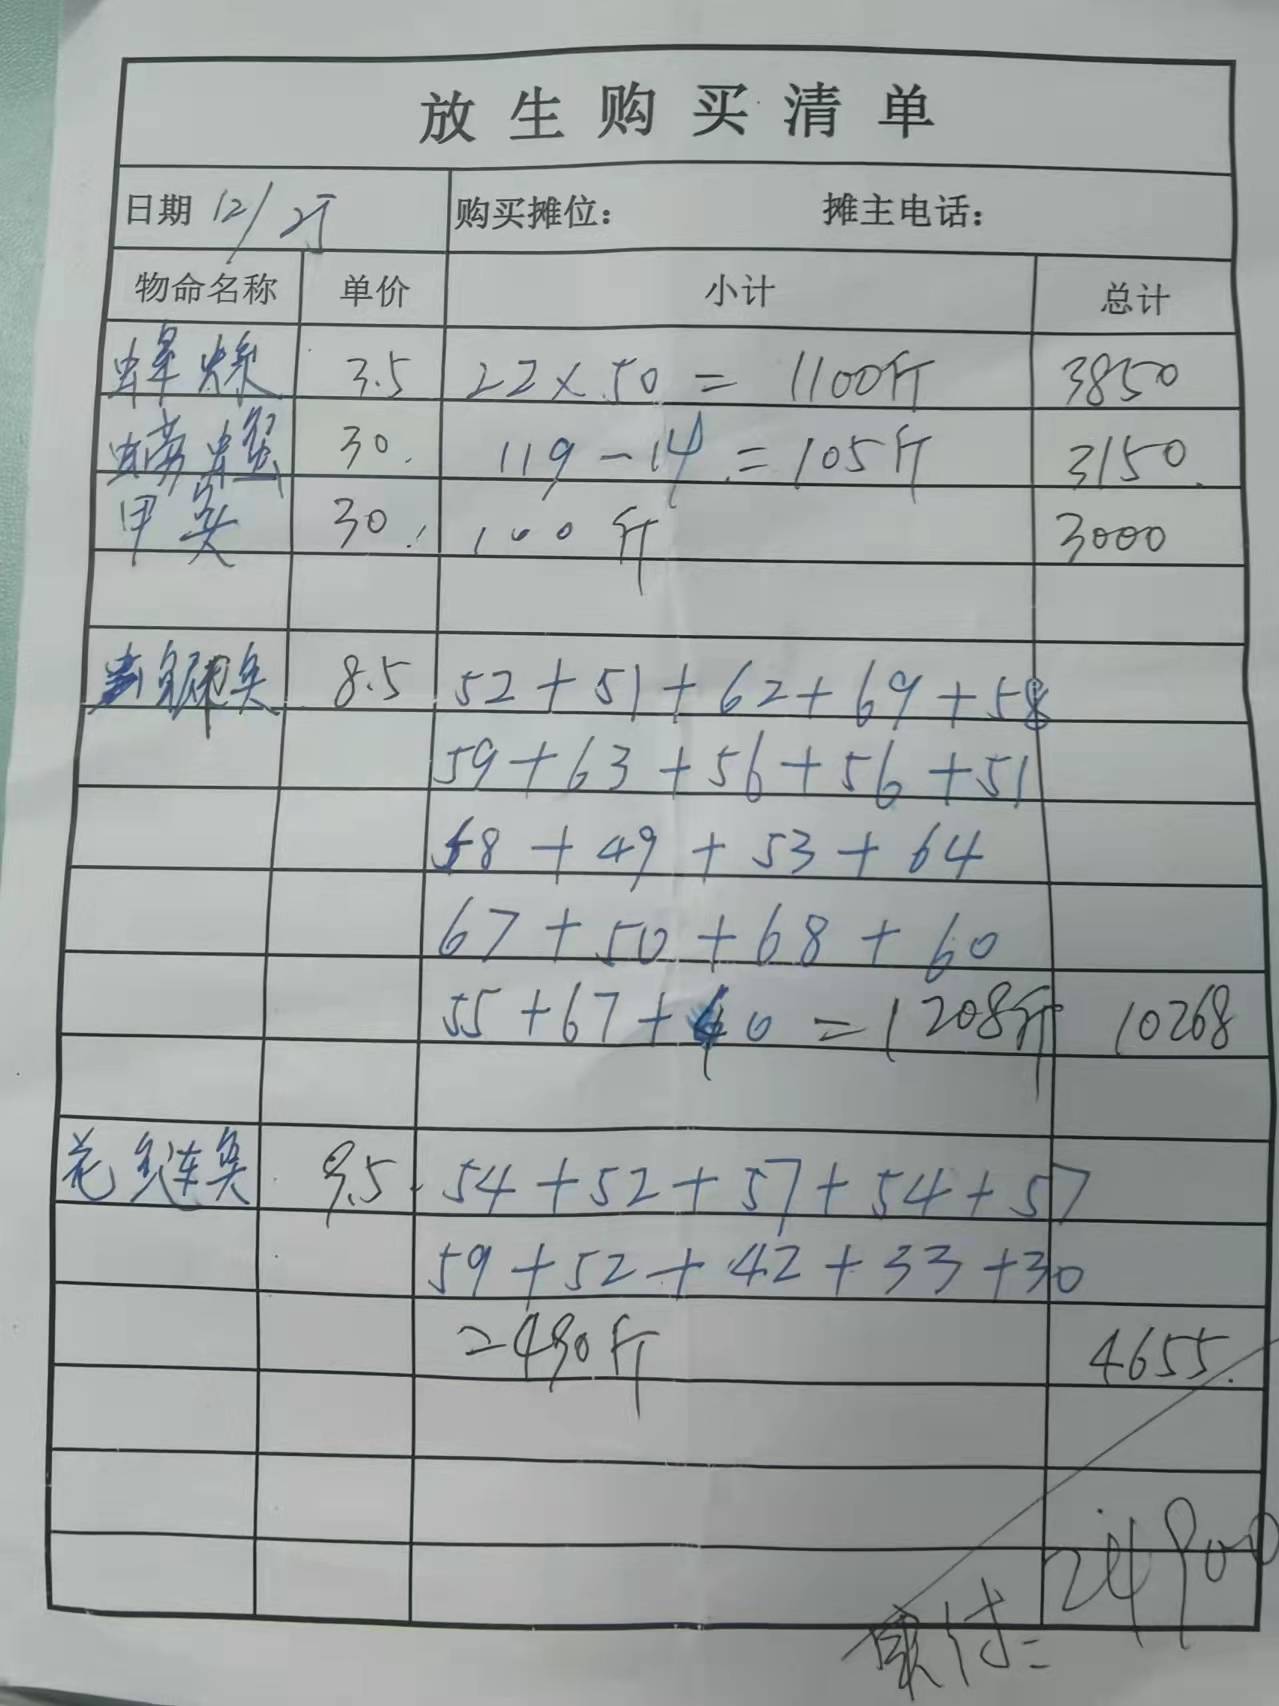 放生购买清单
日期 12/25 购买摊位： 摊主电话：
物命名称 单价 小计 总计
3.5 22×50=1100斤 3850
螃蟹 30. 119-14=105斤 3150.
甲鱼 30. 100斤 3000
8.5 52+51+62+69+58
59+63+56+56+51
58+49+53+64
67+50+68+60
55+67+40=1208斤 10268
花鲢鱼 9.5 54+52+57+54+57
59+52+42+33+30
=490斤 4655.
实付=24900